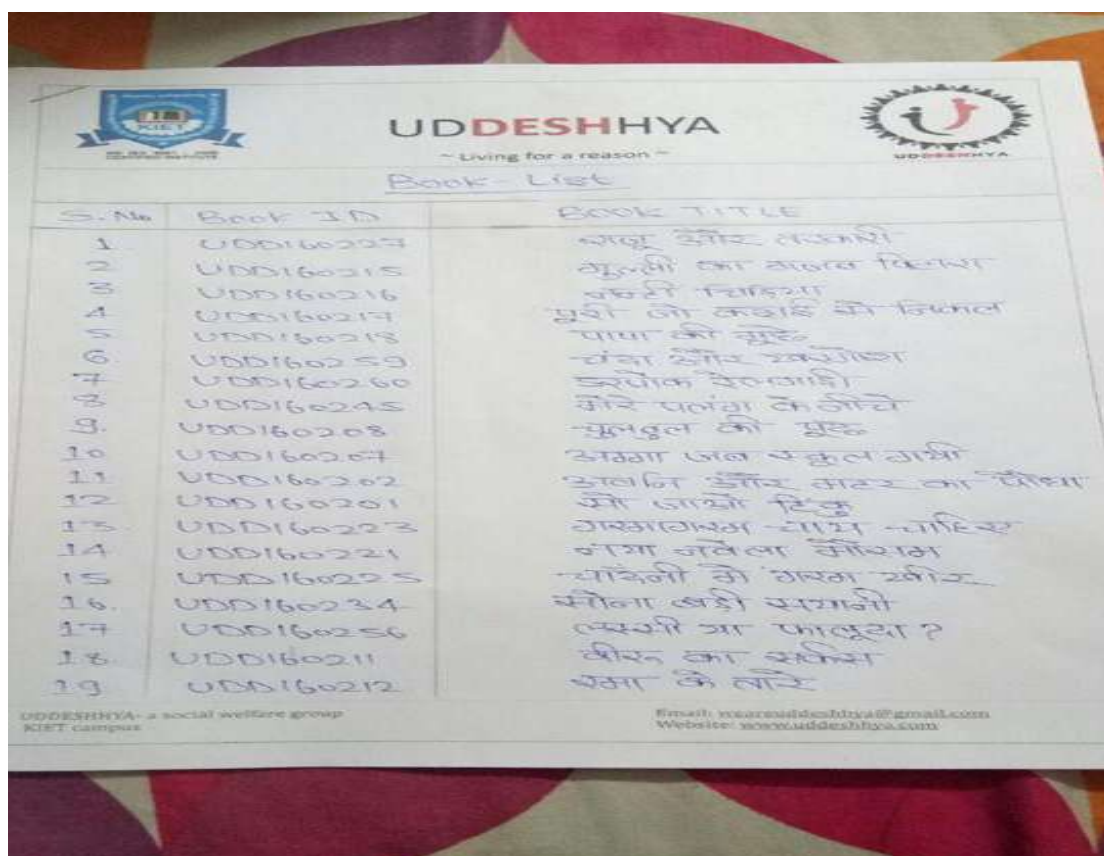 KIET
UDDESHHYA
~ Living for a reason ~
UDDESHHYA
Book-List
S. No Book ID BOOK TITLE
1 UDD160227 राजू और तरकारी
2 UDD160215 गुल्ली का गजब पिटारा
3 UDD160216 नन्ही चिड़िया
4 UDD160217 पूरी जो कढ़ाई से निकल
5 UDD160218 पापा की मूछें
6 UDD160259 चंदा और खरगोश
7 UDD160260 डरपोक रेलगाड़ी
8 UDD160245 मेरे पलंग के नीचे
9. UDD160208 चुलबुल की पूछ
10 UDD160207 अम्मा जब स्कूल गयी
11 UDD160202 और मटर का पौधा
12 UDD160201 सो जाओ टिंकु
13 UDD160223 गरमागरम चाय चाहिए
14 UDD160221 नया नवेला मौसम
15 UDD160225 चाँदनी में गरम खीर
16. UDD160234 सोना बड़ी सयानी
17 UDD160256 लस्सी या फालूदा ?
18. UDD160211 वीरू का सर्कस
19 UDD160212 रमा के तारे
UDDESHHYA- a social welfare group Email: weareuddeshhya@gmail.com
KIET campus Website: www.uddeshhya.com